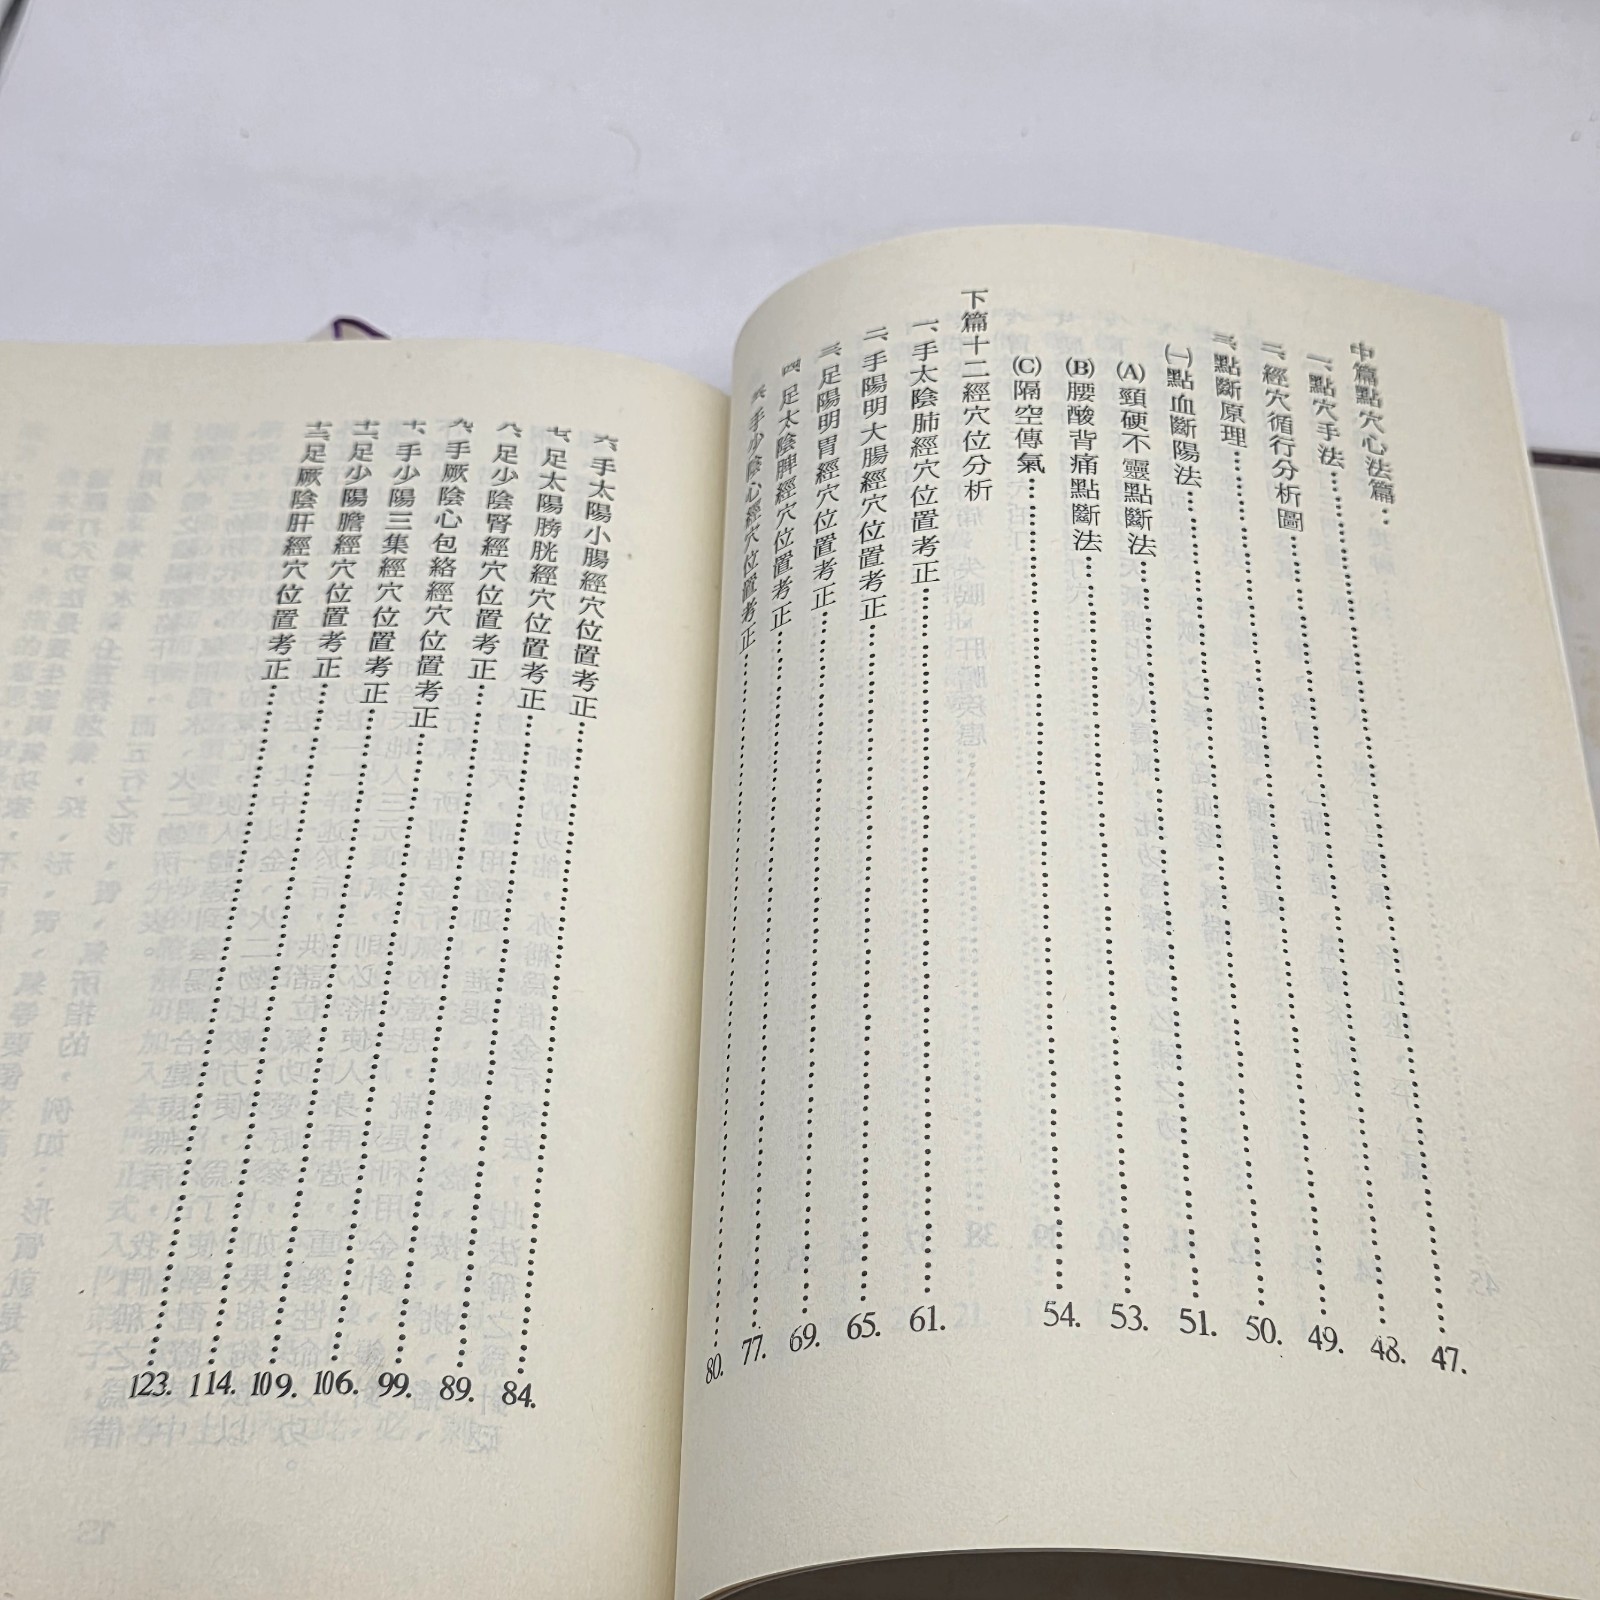 中篇點穴心法篇：
一、點穴手法……47.
二、經穴循行分析圖……48.
三、點斷原理……49.
㈠點血斷陽法……50.
(A)頸硬不靈點斷法……51.
(B)腰酸背痛點斷法……53.
(C)隔空傳氣……54.
下篇十二經穴位分析
一、手太陰肺經穴位置考正……61.
二、手陽明大腸經穴位置考正……65.
三、足陽明胃經穴位置考正……69.
四、足太陰脾經穴位置考正……77.
五、手少陰心經穴位置考正……80.
六、手太陽小腸經穴位置考正……84.
七、足太陽膀胱經穴位置考正……89.
八、足少陰腎經穴位置考正……99.
九、手厥陰心包絡經穴位置考正……106.
十、手少陽三集經穴位置考正……109.
十一、足少陽膽經穴位置考正……114.
十二、足厥陰肝經穴位置考正……123.